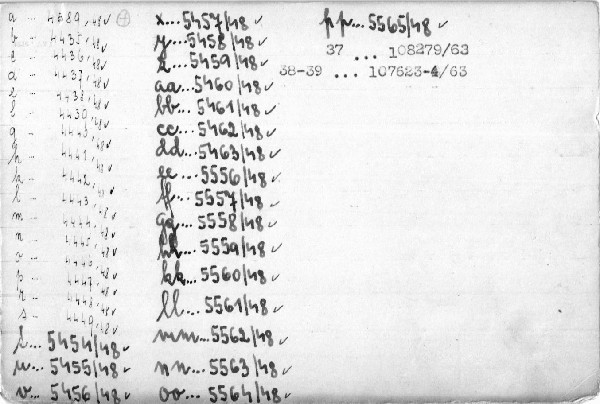 a ... 4389/48 ✓
b ... 4435/48 ✓
c ... 4436/48 ✓
d ... 4437/48 ✓
e ... 4438/48 ✓
g ... 4440/48 ✓
h ... 4441/48 ✓
k ... 4442/48 ✓
l ... 4443/48 ✓
m ... 4444/48 ✓
n ... 4445/48 ✓
p ... 4447/48 ✓
r ... 4448/48 ✓
s ... 4449/48 ✓
t ... 5454/48 ✓
u ... 5455/48 ✓
v ... 5456/48 ✓
x ... 5457/48 ✓
y ... 5458/48 ✓
z ... 5459/48 ✓
aa ... 5460/48 ✓
bb ... 5461/48 ✓
cc ... 5462/48 ✓
dd ... 5463/48 ✓
ee ... 5556/48 ✓
ff ... 5557/48 ✓
gg ... 5558/48 ✓
hh ... 5559/48 ✓
kk ... 5560/48 ✓
ll ... 5561/48 ✓
mm ... 5562/48 ✓
nn ... 5563/48 ✓
oo ... 5564/48 ✓
pp ... 5565/48 ✓
37 ... 108279/63
38-39 ... 107623-4/63